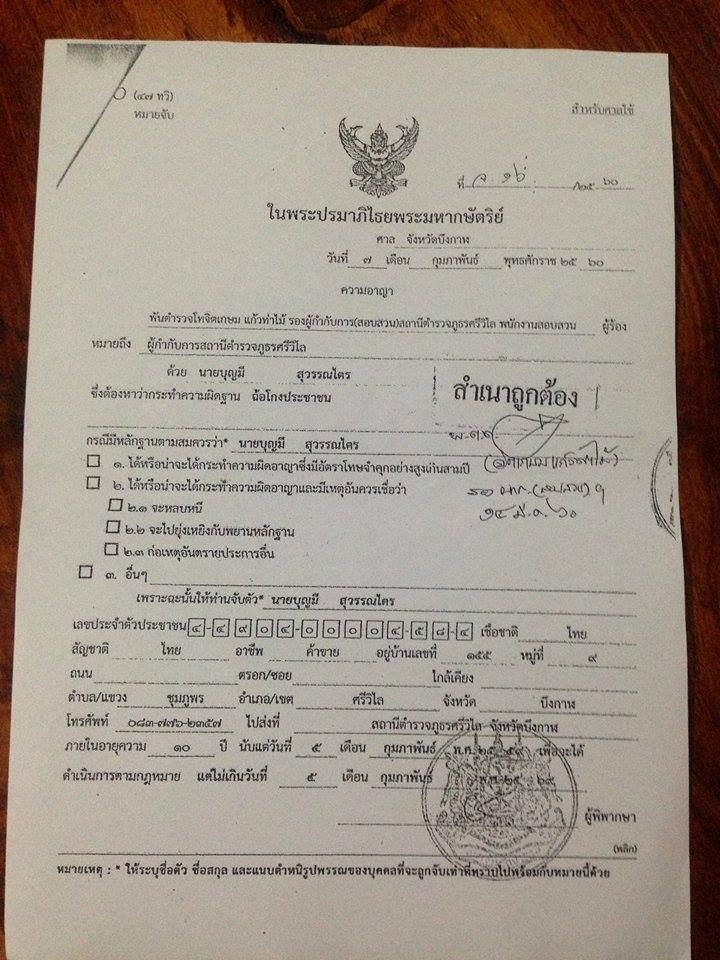 (๔๗ ทวิ)
หมายจับ
สำหรับศาลใช้
ที่ จ.๑๖ /๒๕ ๖๐
ในพระปรมาภิไธยพระมหากษัตริย์
ศาล จังหวัดบึงกาฬ
วันที่ ๗ เดือน กุมภาพันธ์ พุทธศักราช ๒๕ ๖๐
ความอาญา
พันตำรวจโทจิตเกษม แก้วท่าไม้ รองผู้กำกับการ(สอบสวน)สถานีตำรวจภูธรศรีวิไล พนักงานสอบสวน ผู้ร้อง
หมายถึง ผู้กำกับการสถานีตำรวจภูธรศรีวิไล
ด้วย นายบุญมี สุวรรณไตร
ซึ่งต้องหาว่ากระทำความผิดฐาน ฉ้อโกงประชาชน
สำเนาถูกต้อง
พ.ต.ท.
กรณีมีหลักฐานตามสมควรว่า* นายบุญมี สุวรรณไตร
(จิตเกษม แก้วท่าไม้)
๑. ได้หรือน่าจะได้กระทำความผิดอาญาซึ่งมีอัตราโทษจำคุกอย่างสูงเกินสามปี
๒. ได้หรือน่าจะได้กระทำความผิดอาญาและมีเหตุอันควรเชื่อว่า
รอง ผกก.(สอบสวน)ฯ
๒.๑ จะหลบหนี
๑๔ มี.ค. ๖๐
๒.๒ จะไปยุ่งเหยิงกับพยานหลักฐาน
๒.๓ ก่อเหตุอันตรายประการอื่น
๓. อื่นๆ
เพราะฉะนั้นให้ท่านจับตัว* นายบุญมี สุวรรณไตร
เลขประจำตัวประชาชน ๔-๔๙๐๔-๐๐๐๐๔-๕๘-๔ เชื้อชาติ ไทย
สัญชาติ ไทย อาชีพ ค้าขาย อยู่บ้านเลขที่ ๑๕๕ หมู่ที่ ๙
ถนน ตรอก/ซอย ใกล้เคียง
ตำบล/แขวง ชุมภูพร อำเภอ/เขต ศรีวิไล จังหวัด บึงกาฬ
โทรศัพท์ ๐๘๓-๗๗๖-๒๓๕๗ ไปส่งที่ สถานีตำรวจภูธรศรีวิไล จังหวัดบึงกาฬ
ภายในอายุความ ๑๐ ปี นับแต่วันที่ ๕ เดือน กุมภาพันธ์ พ.ศ.๒๕ ๕๙ เพื่อจะได้
ดำเนินการตามกฎหมาย แต่ไม่เกินวันที่ ๕ เดือน กุมภาพันธ์ พ.ศ.๒๕ ๖๙
ผู้พิพากษา
(พลิก)
หมายเหตุ : * ให้ระบุชื่อตัว ชื่อสกุล และแนบตำหนิรูปพรรณของบุคคลที่จะถูกจับเท่าที่ทราบไปพร้อมกับหมายนี้ด้วย